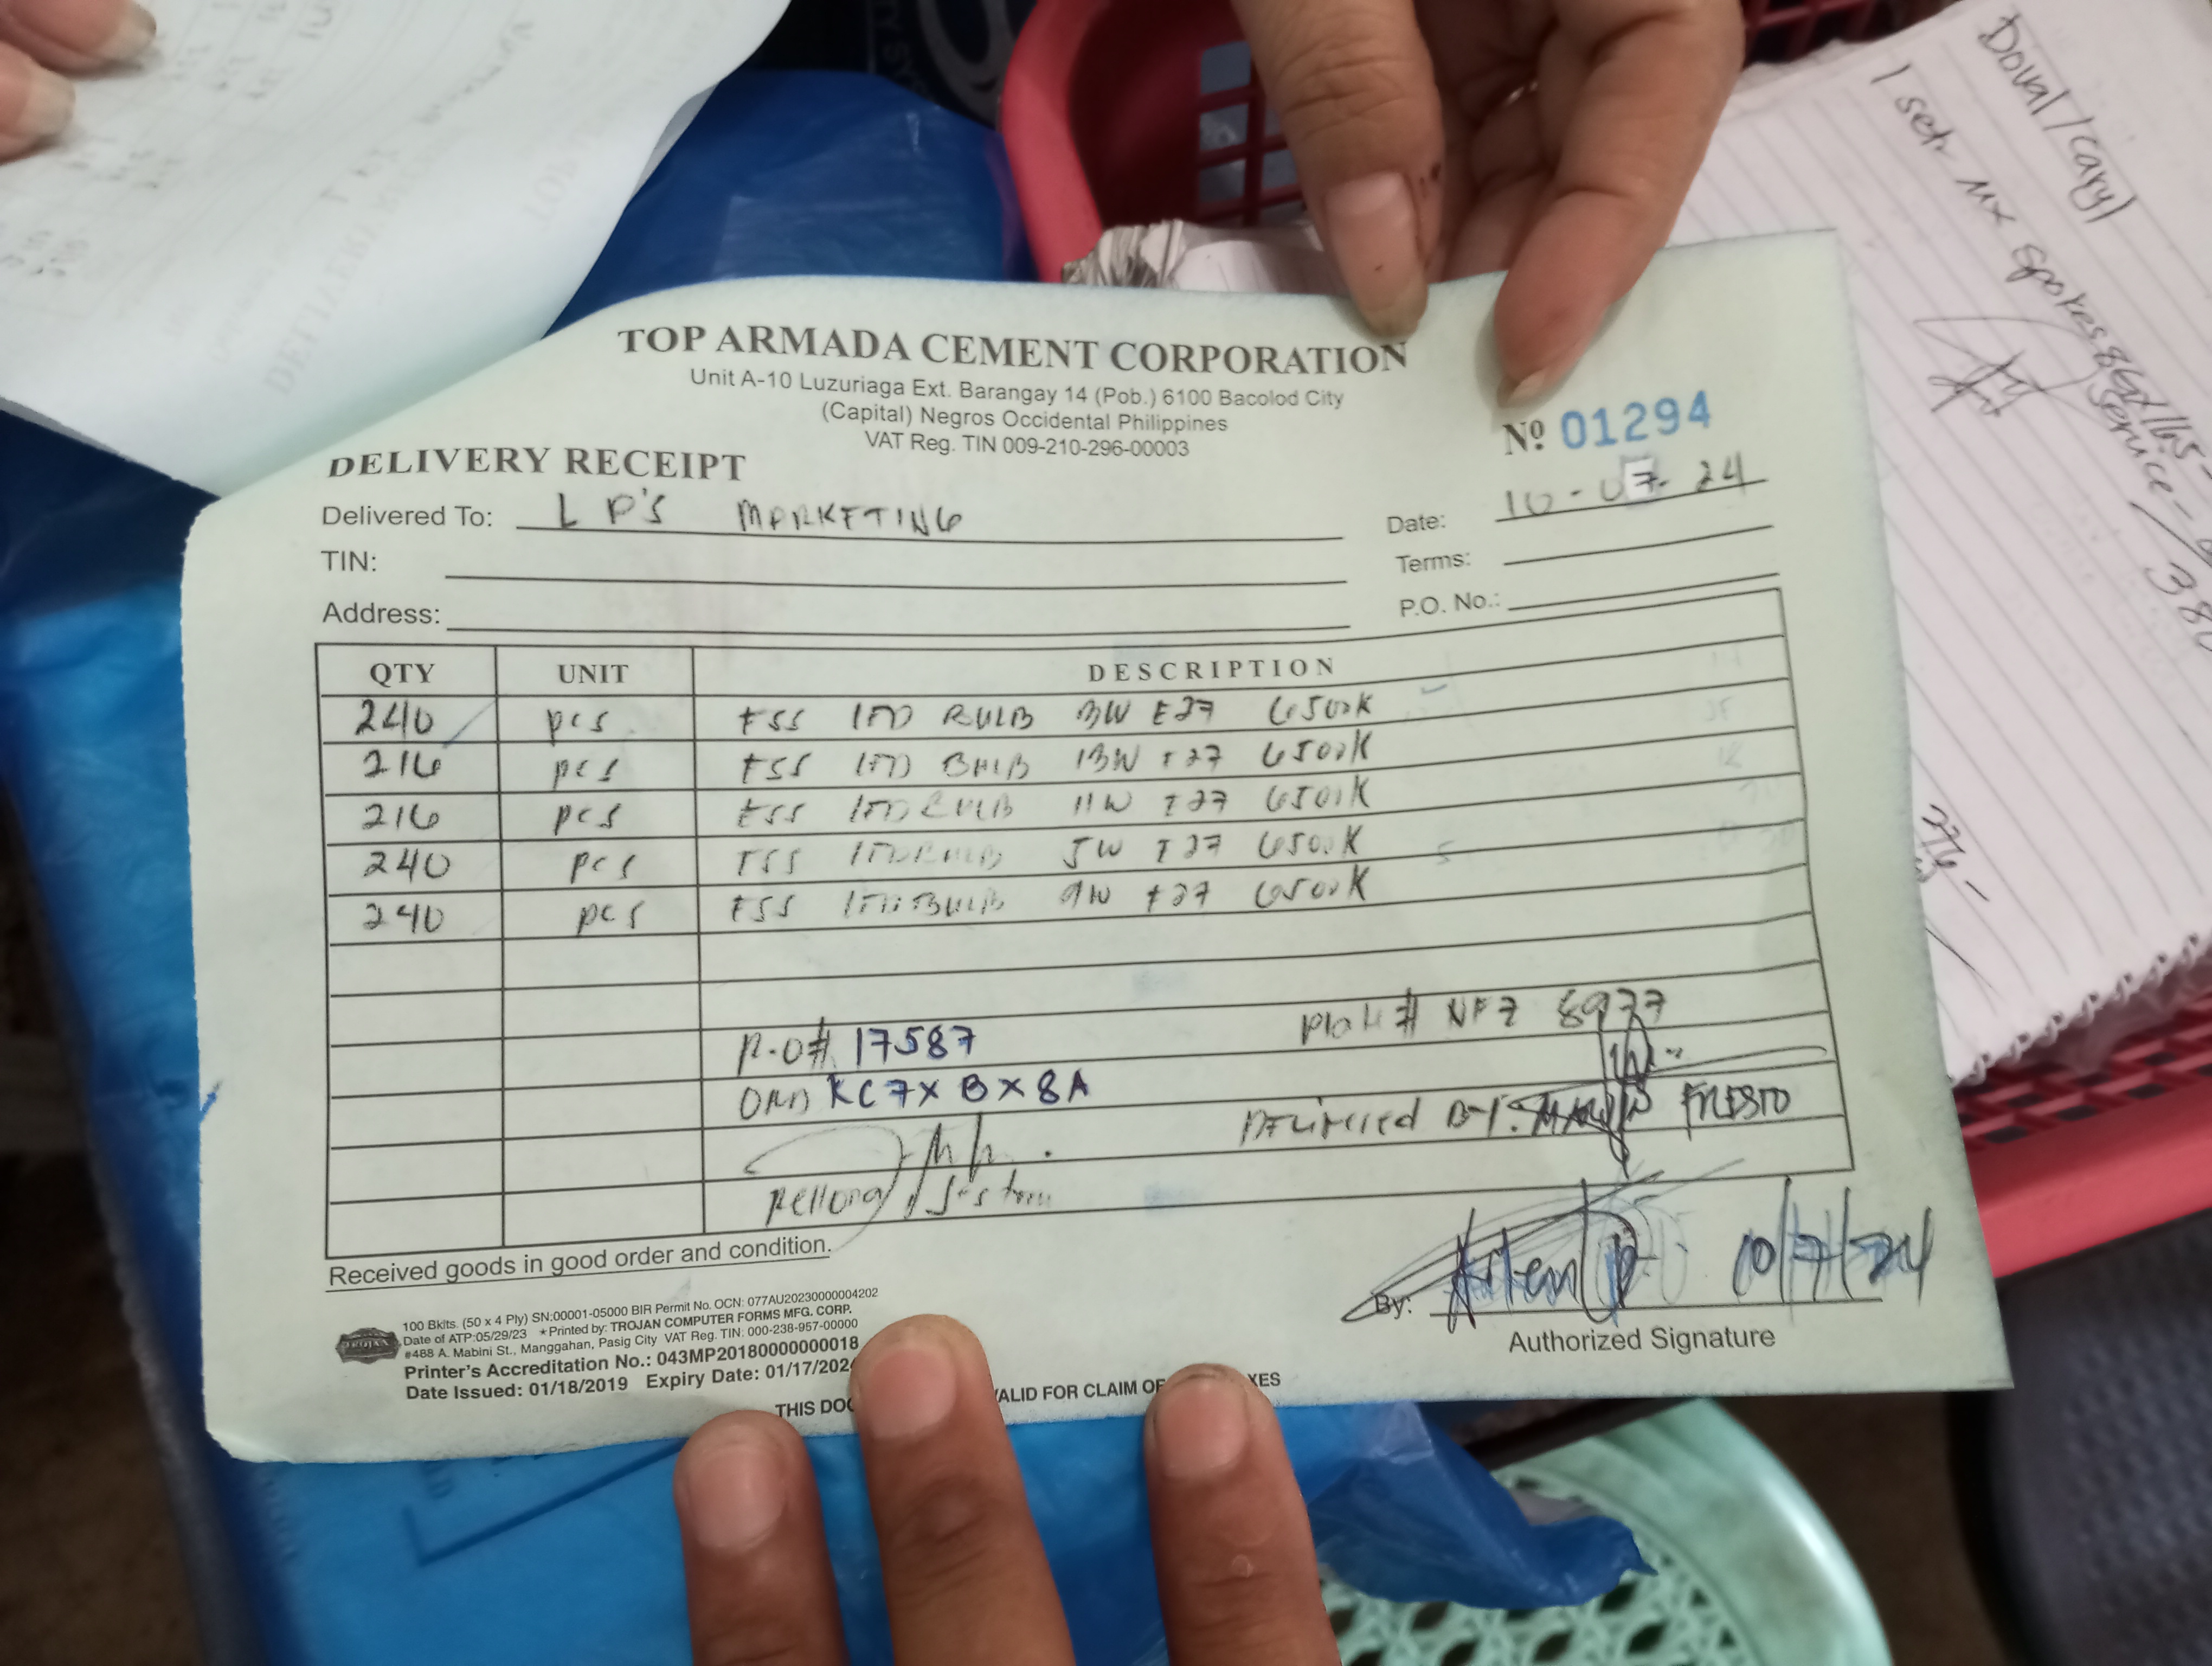 TOP ARMADA CEMENT CORPORATION
Unit A-10 Luzuriaga Ext. Barangay 14 (Pob.) 6100 Bacolod City
(Capital) Negros Occidental Philippines
VAT Reg. TIN 009-210-296-00003
Nº 01294
DELIVERY RECEIPT
Delivered To: L P'S MARKETING
Date: 10-07-24
TIN:
Terms:
Address:
P.O. No.:
QTY UNIT DESCRIPTION
240 pcs FSS LED BULB 3W E27 6500K
216 pcs FSS LED BULB 13W E27 6500K
216 pcs FSS LED BULB 11W E27 6500K
240 pcs FSS LED BULB 5W E27 6500K
240 pcs FSS LED BULB 9W E27 6500K
P.O# 17587
KC7XBX8A
Plate # NFZ 8977
Delivered By:
Received goods in good order and condition.
By: 10/7/24
Authorized Signature
100 Bklts. (50 x 4 Ply) SN:00001-05000 BIR Permit No. OCN: 077AU20230000004202
Date of ATP:05/29/23 ★Printed by: TROJAN COMPUTER FORMS MFG. CORP.
#488 A. Mabini St., Manggahan, Pasig City VAT Reg. TIN: 000-238-957-00000
Printer's Accreditation No.: 043MP20180000000018
Date Issued: 01/18/2019 Expiry Date: 01/17/2024
THIS DOC ALID FOR CLAIM OF XES
TROJAN
1 set
Service
276-